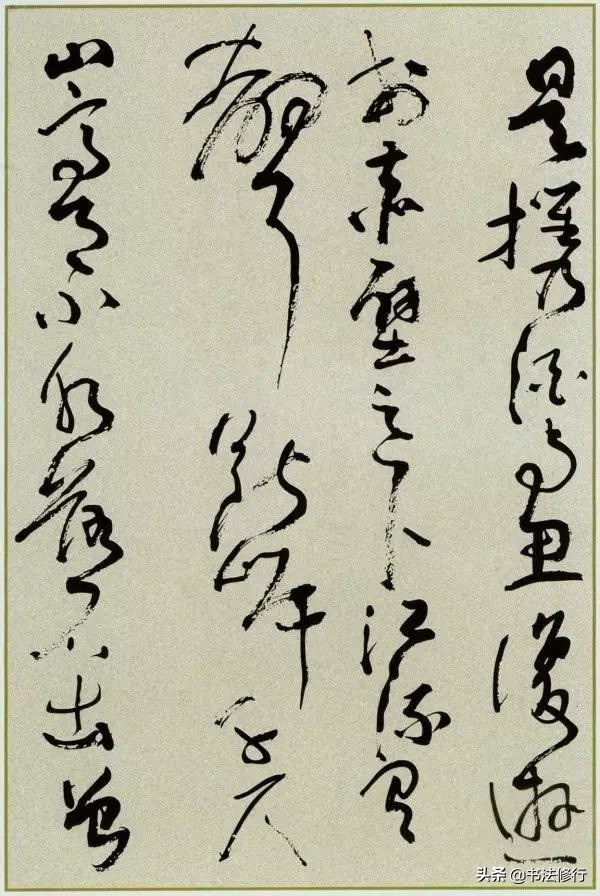 是携酒與魚復遊
於赤壁之下江流有
聲斷岸千尺
山高月小水落石出曾
头条 @书法修行